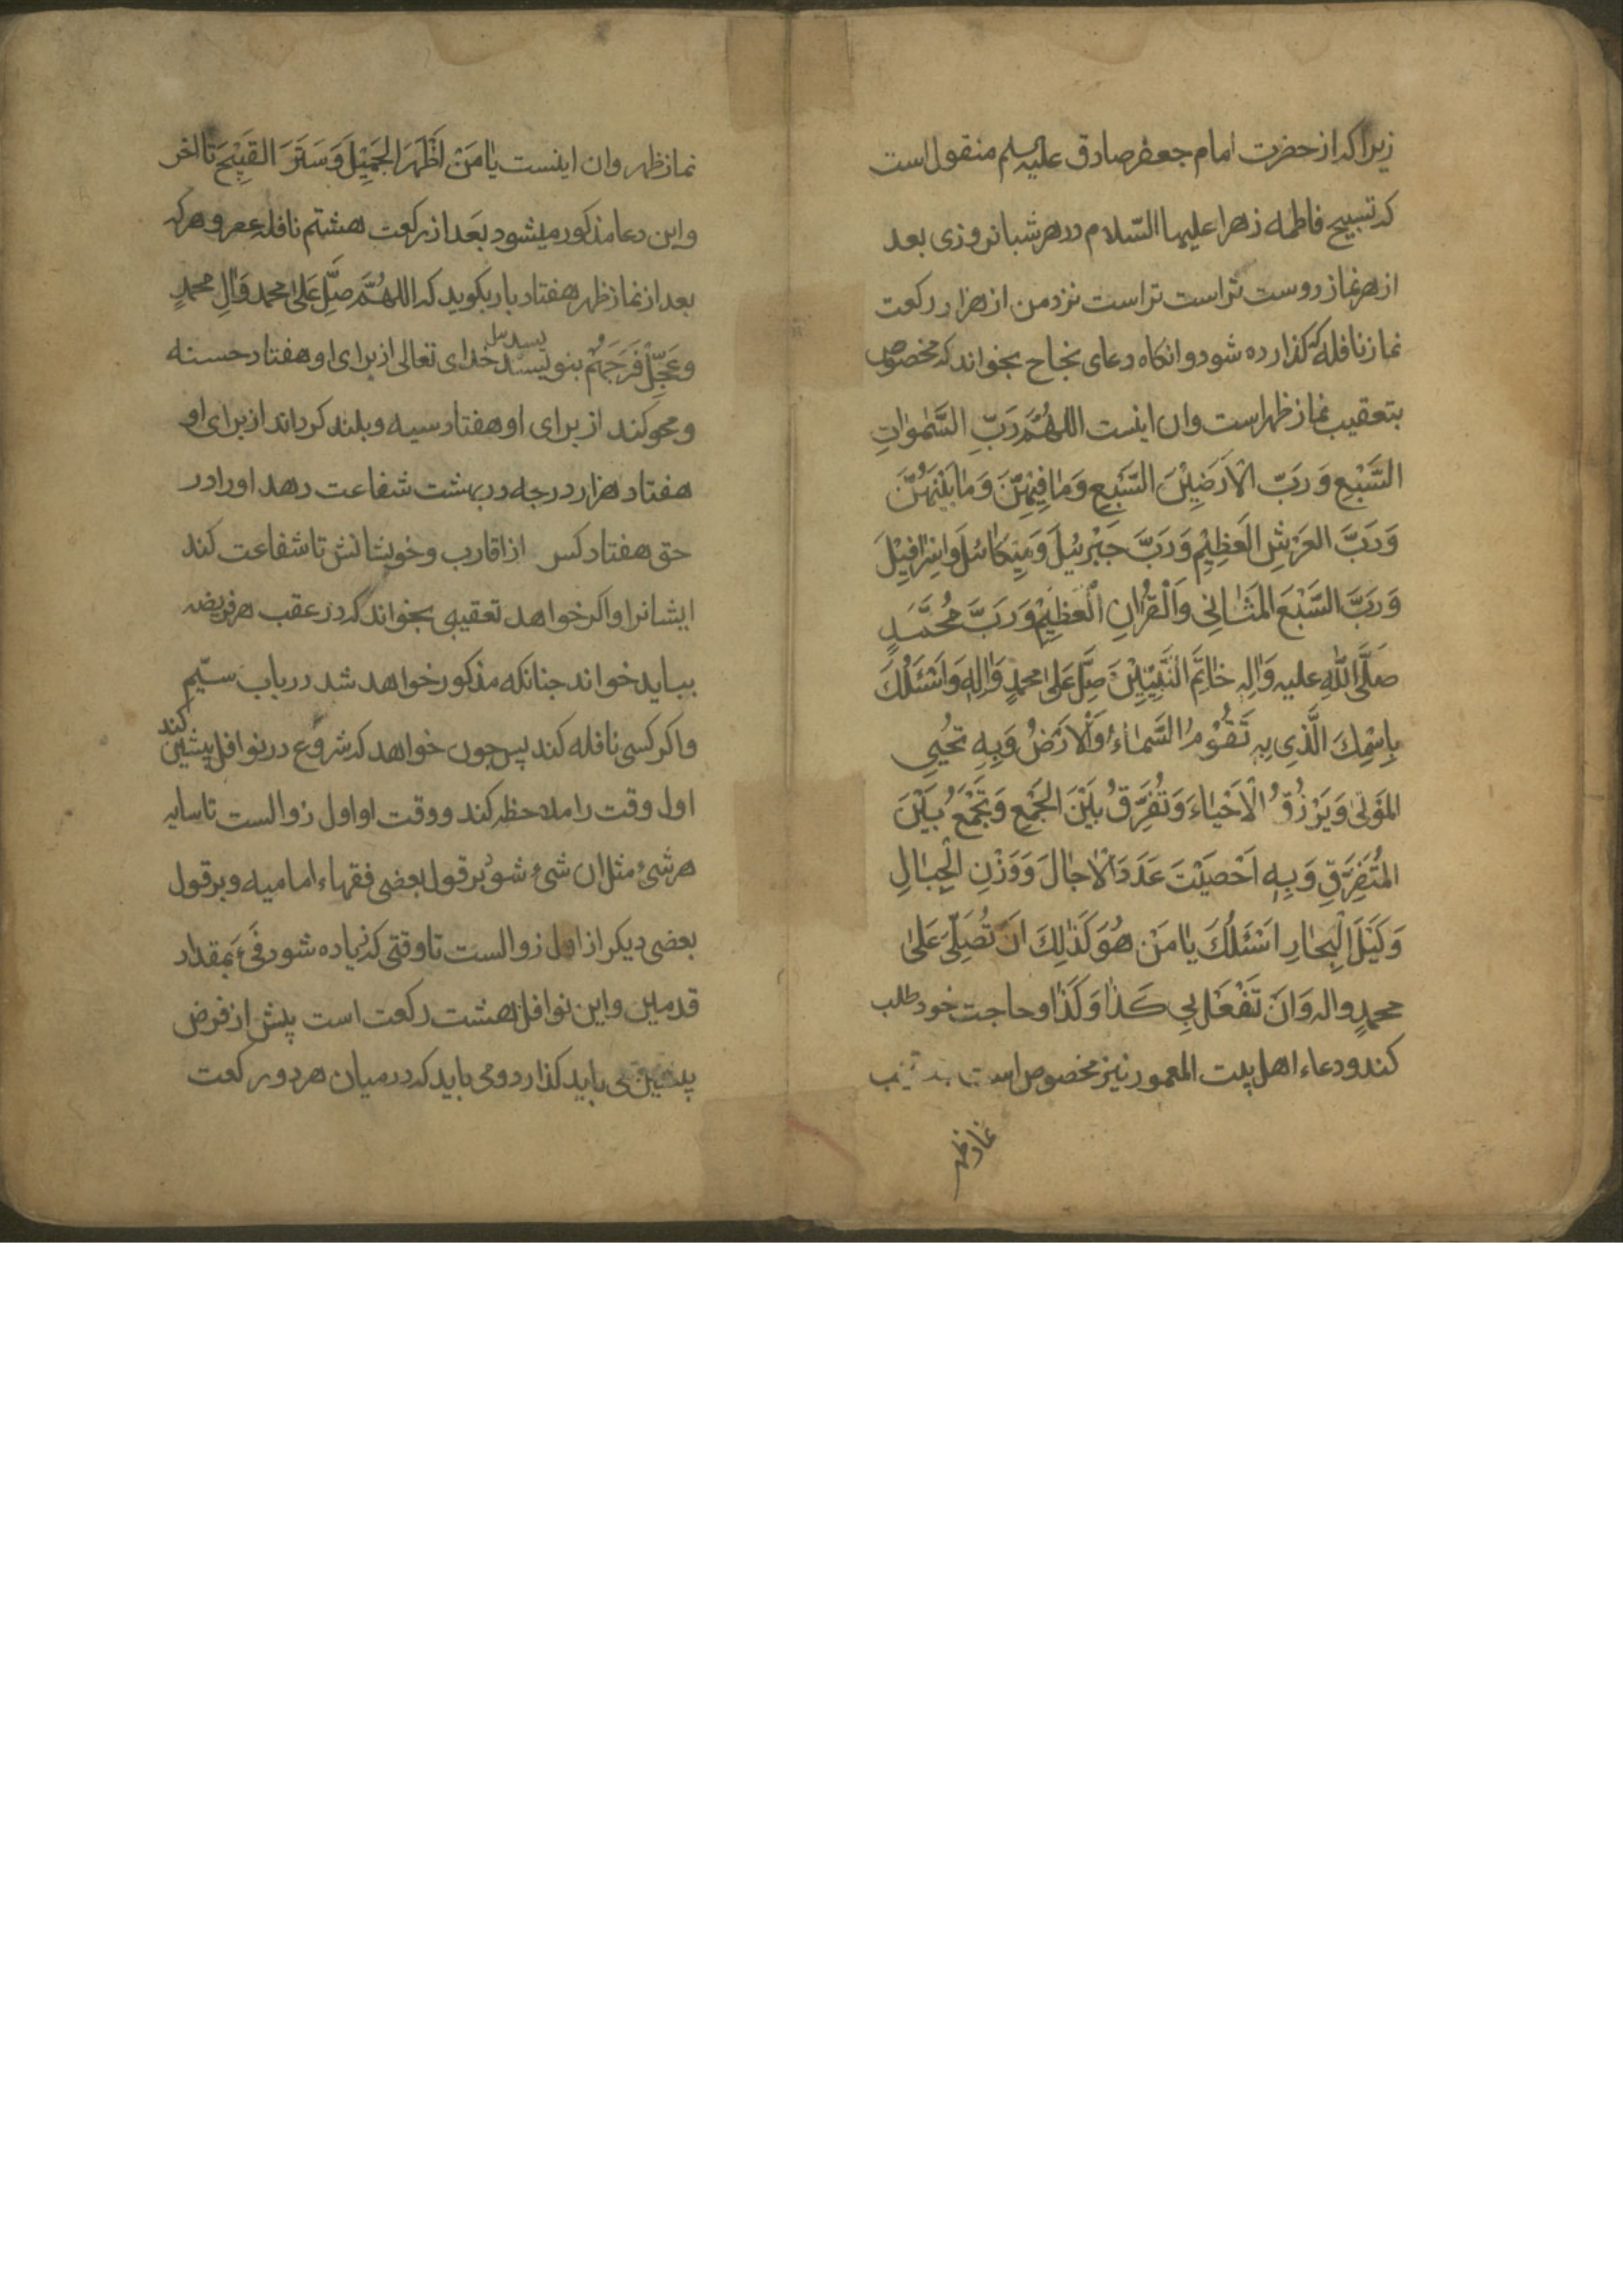 زیرا که از حضرت امام جعفر صادق علیه السلم منقول است
که تسبیح فاطمه زهرا علیها السّلام در هر شبانروزی بعد
از هر نماز دوست تر است تر است نزد من از هزار رکعت
نماز نافله که کذارده شود و انکاه دعای نجاح بخواند که مخصوص
بتعقیب نماز ظهر است وان اینست اَللّهُمَّ رَبِّ السَّمٰوٰاتِ
السَّبْعِ وَرَبّ الْاَرَضِیْنَ السَّبْعِ وَمٰا فِیْهِنَّ وَمٰا بَیْنَهُنَّ
وَرَبَّ العَرْشِ العَظِیْمِ وَرَبَّ جَبْرَئیلَ وَمیٖکٰائیلَ وَاِسْرٰافِیْلَ
وَرَبَّ السَّبْعَ المَثٰانِی وَالْقُرْانِ الْعَظِیْمِ وَرَبَّ مُحَمَّدٍ
صَلَّی اللّٰهِ علیه وَاٰلِهِ خٰاتَمِ النَّبِیّیْنَ صَلِّ عَلیٰ محمدٍ وَاٰلِهِ وَاَسْئَلُكَ
بِاسْمِكَ الَّذِی بِهِ تَقُوْمُ السَّمٰاءُ وَالْاَرْضُ وَبِهِ تُحْیِی
المَوْتٰی وَیَرْزُقُ الْاَحْیٰاءَ وَتُفَرِّقُ بَیْنَ الجَمْعِ وَتَجْمَعُ بَیْنَ
المُتَفَرِّقِ وَبِهِ اَحْصَیْتَ عَدَدَ الْاٰجٰالَ وَوَزْنِ الْجِبٰالِ
وَکَیْلَ الْبِحٰارِ اَسْئَلُكَ یٰا مَنْ هُوَ کَذٰلِكَ اَنْ تُصَلِّیَ عَلیٰ
محمدٍ واله وَاَنْ تَفْعَلَ بِی کَذٰا وَکَذٰا و حاجت خود طلب
کند و دعاء اهل بیت المعمور نیز مخصوص است بتعقیب
نماز ظهر
نماز ظهر وان اینست یٰا مَنْ اَظْهَرَ الجَمِیْلَ وَسَتَرَ القَبِیْحَ تا اخر
واین دعا مذکور میشود بعَد از رکعت هشتم نافله عصر و هر که
بعد از نماز ظهر هفتاد بار بکوید که اللهُمَّ صَلِّ عَلیٰ محمد وَاٰلِ محمدٍ
وَعَجِّلْ فَرَجَهُمْ بنویسد خدای تعالی از برای او هفتاد حسنه
ومحو کند از برای او هفتاد سیه و بلند کرداند از برای او
هفتاد هزار درجه در بهشت شفاعت دهد او را در
حق هفتاد کس از اقارب و خویشانش تا شفاعت کند
ایشانرا واکر خواهد تعقیبی بخواند که در عقب هر فریضه
بباید خواند جنانکه مذکور خواهد شد در باب سیّم
واکر کسی نافله کند پس جون خواهد که شروع در نوافل پیشین کند
اول وقت را ملاحظه کند و وقت او اول زوالست تا سایه
هر شیٔ مثل ان شیٔ شود بر قول بعضی فقهاء امامیه و بر قول
بعضی دیکر از اول زوالست تا وقتی که زیاده شود فَیْ بَمقدار
قدمین واین نوافل هشت رکعت است پیش از فرض
پیشین می باید کذارد و می باید که در میان هر دو رکعت